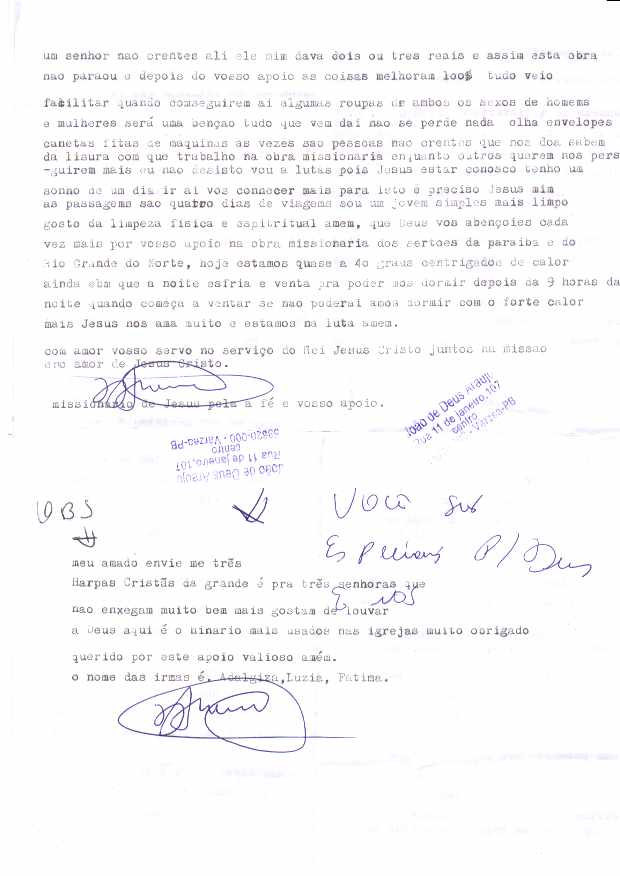 um senhor nao crentes ali ele mim dava dois ou tres reais e assim esta obra
nao paraou e depois do vosso apoio as coisas melhoram 100% tudo veio
facilitar quando comseguirem ai algumas roupas de ambos os sexos de homems
e mulheres será uma bençao tudo que vem daí nao se perde nada olha envelopes
canetas fitas de maquinas as vezes sao pessoas nao crentes que nos doa sabem
da lisura com que trabalho na obra missionaria enquanto outros querem nos pers
-guirem mais eu nao desisto vou a lutas pois Jesus estar conosco tenho um
sonho de um dia ir ai vos connecer mais para isto e preciso Jesus mim
as passagems sao quatro dias de viagems sou um jovem simples mais limpo
gosto da limpeza fisica e espitritual amem, que Deus vos abençoies cada
vez mais por vosso apoio na obra missionaria dos sertoes da paraiba e do
Rio Grande do Norte, hoje estamos quase a 40 graus centrigados de calor
ainda ebm que a noite esfria e venta pra poder nos dormir depois da 9 horas da
noite quando começa a ventar se nao poderai amos dormir com o forte calor
mais Jesus nos ama muito e estamos na luta amem.
com amor vosso servo no serviço do Rei Jesus Cristo juntos na missao
eno amor de Jesus Cristo.
missionário de Jesus pela a fé e vosso apoio.
João de Deus Araujo
Rua 11 de janeiro, 107
centro
- Varzea-PB
João de Deus Araujo
Rua 11 de janeiro, 107
centro
- Varzea-PB
OBS
Você sus
Especiais P/ Deus
meu amado envie me três
Harpas Cristãs da grande é pra três senhoras que
E nos
nao enxegam muito bem mais gostam de louvar
a Deus aqui é o hinario mais usados nas igrejas muito obrigado
querido por este apoio valioso amém.
o nome das irmas é. Adalgiza,Luzia, Fatima.